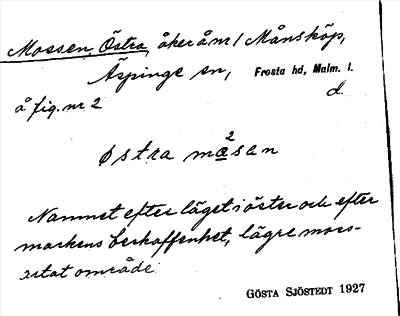 Mossen, Östra, åker å m/ Månsköp,
Äspinge sn, Frosta hd, Malm. l.
å fig. nr 2 d.
østra må²san
Namnet efter läget i öster och efter
markens beskaffenhet, lägre moss-
artat område.
GÖSTA SJÖSTEDT 1927